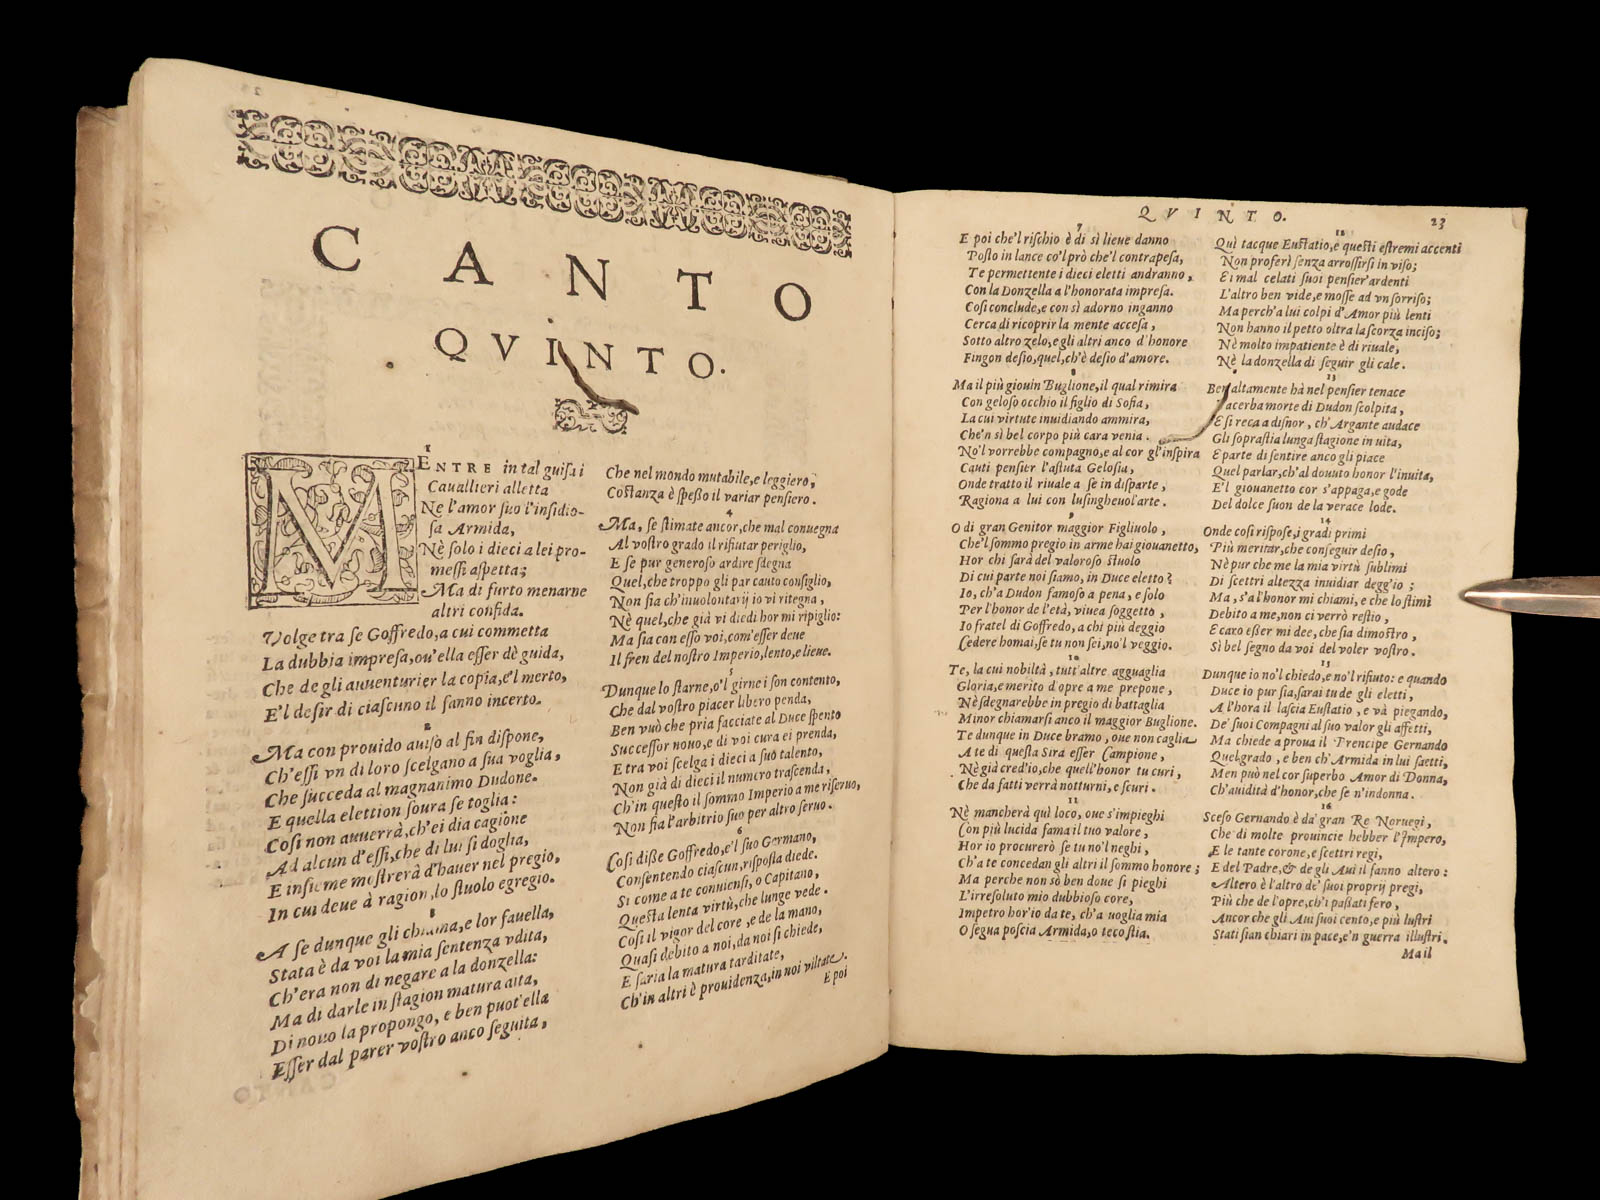 CANTO
QVINTO.
1
MENTRE in tal guisa i
Cauallieri alletta
Ne l'amor suo l'insidio-
sa Armida,
Nè solo i dieci a lei pro-
messi aspetta;
Ma di furto menarne
altri confida.
Volge tra se Goffredo, a cui commetta
La dubbia impresa, ou'ella esser dè guida,
Che de gli auuenturier la copia, e'l merto,
E'l desir di ciascuno il fanno incerto.
2
Ma con prouido auiso al fin dispone,
Ch'essi vn di loro scelgano a sua voglia,
Che succeda al magnanimo Dudone.
E quella elettion soura se toglia:
Cosi non auuerrà, ch'ei dia cagione
Ad alcun d'essi, che di lui si doglia,
E insieme mostrerà d'hauer nel pregio,
In cui deue à ragion, lo stuolo egregio.
3
A se dunque gli chiama, e lor fauella,
Stata è da voi la mia sentenza vdita,
Ch'era non di negare a la donzella:
Ma di darle in stagion matura aita,
Di nouo la propongo, e ben puot'ella
Esser dal parer vostro anco seguita,
Che nel mondo mutabile, e leggiero,
Costanza è spesso il variar pensiero.
4
Ma, se stimate ancor, che mal conuegna
Al vostro grado il rifiutar periglio,
E se pur generoso ardire sdegna
Quel, che troppo gli par cauto consiglio,
Non fia ch'inuolontarij io vi ritegna,
Nè quel, che già vi diedi hor mi ripiglio:
Ma sia con esso voi, com'esser deue
Il fren del nostro Imperio, lento, e lieue.
5
Dunque lo starne, o'l girne i son contento,
Che dal vostro piacer libero penda,
Ben vuò che pria facciate al Duce spento
Successor nouo, e di voi cura ei prenda,
E tra voi scelga i dieci a suo talento,
Non già di dieci il numero trascenda,
Ch'in questo il sommo Imperio a me riseruo,
Non fia l'arbitrio suo per altro seruo.
6
Cosi disse Goffredo, e'l suo Germano,
Consentendo ciascun, risposta diede.
Si come a te conuiensi, o Capitano,
Questa lenta virtù, che lunge vede.
Cosi il vigor del core, e de la mano,
Quasi debito a noi, da noi si chiede,
E saria la matura tarditate,
Ch'in altri è prouidenza, in noi viltate.
E poi
QVINTO.
23
7
E poi che'l rischio è di sì lieue danno
Posto in lance co'l prò che'l contrapesa,
Te permettente i dieci eletti andranno,
Con la Donzella a l'honorata impresa.
Cosi conclude, e con sì adorno inganno
Cerca di ricoprir la mente accesa,
Sotto altro zelo, e gli altri anco d'honore
Fingon desio, quel, ch'è desio d'amore.
8
Ma il più giouin Buglione, il qual rimira
Con geloso occhio il figlio di Sofia,
La cui virtute inuidiando ammira,
Che'n sì bel corpo più cara venia.
No'l vorrebbe compagno, e al cor gl'inspira
Cauti pensier l'astuta Gelosia,
Onde tratto il riuale a se in disparte,
Ragiona a lui con lusingheuol'arte.
9
O di gran Genitor maggior Figliuolo,
Che'l sommo pregio in arme hai giouanetto,
Hor chi sarà del valoroso stuolo
Di cui parte noi siamo, in Duce eletto?
Io, ch'a Dudon famoso a pena, e solo
Per l'honor de l'età, viuea soggetto,
Io fratel di Goffredo, a chi più deggio
Cedere homai, se tu non sei, no'l veggio.
10
Te, la cui nobiltà, tutt'altre agguaglia
Gloria, e merito d'opre a me prepone,
Nè sdegnarebbe in pregio di battaglia
Minor chiamarsi anco il maggior Buglione.
Te dunque in Duce bramo, oue non caglia
A te di questa Sira esser Campione,
Nè già cred'io, che quell'honor tu curi,
Che da fatti verrà notturni, e scuri.
11
Nè mancherà quì loco, oue s'impieghi
Con più lucida fama il tuo valore,
Hor io procurerò se tu no'l neghi,
Ch'a te concedan gli altri il sommo honore;
Ma perche non sò ben doue si pieghi
L'irresoluto mio dubbioso core,
Impetro hor'io da te, ch'a voglia mia
O segua poscia Armida, o teco stia.
12
Quì tacque Eustatio, e questi estremi accenti
Non proferì senza arrossirsi in viso;
E i mal celati suoi pensier'ardenti
L'altro ben vide, e mosse ad vn sorriso;
Ma perch'a lui colpi d'Amor più lenti
Non hanno il petto oltra la scorza inciso;
Nè molto impatiente è di riuale,
Nè la donzella di seguir gli cale.
13
Ben altamente hà nel pensier tenace
L'acerba morte di Dudon scolpita,
E si reca a disnor, ch'Argante audace
Gli soprastia lunga stagione in vita,
E parte di sentire anco gli piace
Quel parlar, ch'al douuto honor l'inuita,
E'l giouanetto cor s'appaga, e gode
Del dolce suon de la verace lode.
14
Onde cosi rispose, i gradi primi
Più meritar, che conseguir desio,
Nè pur che me la mia virtù sublimi
Di scettri altezza inuidiar degg'io;
Ma, s'a l'honor mi chiami, e che lo stimi
Debito a me, non ci verrò restio,
E caro esser mi dee, che sia dimostro,
Sì bel segno da voi del voler vostro.
15
Dunque io no'l chiedo, e no'l rifiuto: e quando
Duce io pur sia, sarai tu de gli eletti,
A l'hora il lascia Eustatio, e và piegando,
De' suoi Compagni al suo valor gli affetti,
Ma chiede a proua il Prencipe Gernando
Quel grado, e ben ch'Armida in lui saetti,
Men può nel cor superbo Amor di Donna,
Ch'auidità d'honor, che se n'indonna.
16
Sceso Gernando è da' gran Re Noruegi,
Che di molte prouincie hebber l'Impero,
E le tante corone, e scettri regi,
E del Padre, & de gli Aui il fanno altero:
Altero è l'altro de' suoi proprij pregi,
Più che de l'opre, ch'i passati fero,
Ancor che gli Aui suoi cento, e più lustri
Stati sian chiari in pace, e'n guerra illustri.
Ma il